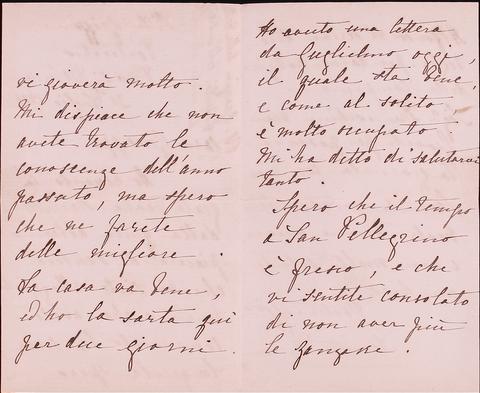 vi gioverà molto.
Mi dispiace che non
avete trovato le
conoscenze dell'anno
passato, ma spero
che ne farete
delle migliore.
La casa va bene,
ed ho la sarta qui
per due giorni.
Ho avuto una lettera
da Guglielmo oggi,
il quale sta bene,
e come al solito,
è molto occupato
Mi ha detto di salutarvi
tanto.
Spero che il tempo
a San Pellegrino
è fresco, e che
vi sentite consolato
di non aver più
le zanzare.